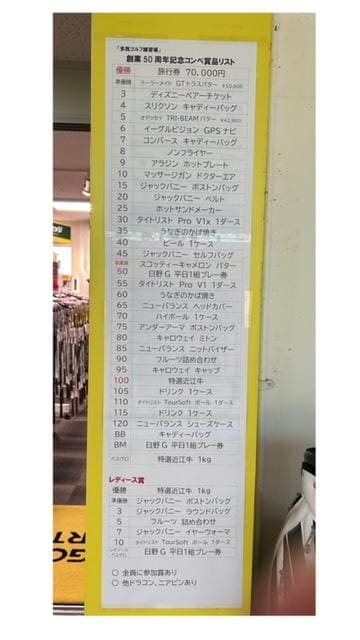 「多賀ゴルフ練習場」
創業50周年記念コンペ賞品リスト
優勝 旅行券 70,000円
準優勝 テーラーメイド GTトラスパター ¥50,600
3 ディズニーペアーチケット
4 スリクソン キャディーバッグ
5 オデッセイ TRI-BEAMパター ¥42,900
6 イーグルビジョン GPSナビ
7 コンバース キャディーバッグ
8 ノンフライヤー
9 アラジン ホットプレート
10 マッサージガン ドクターエア
15 ジャックバニー ボストンバッグ
20 ジャックバニー ベルト
25 ホットサンドメーカー
30 タイトリスト Pro V1x 1ダース
35 うなぎのかば焼き
40 ビール 1ケース
45 ジャックバニー セルフバッグ
創業賞 50 スコッティーキャメロン パター
日野G 平日1組プレー券
55 タイトリスト Pro V1 1ダース
60 うなぎのかば焼き
65 ニューバランス ヘッドカバー
70 ハイボール 1ケース
75 アンダーアーマ ボストンバッグ
80 キャロウェイ ミトン
85 ニューバランス ニットバイザー
90 フルーツ詰め合わせ
95 キャロウェイ キャップ
100 特選近江牛
105 ドリンク 1ケース
110 タイトリスト TourSoft ボール 1ダース
115 ドリンク 1ケース
120 ニューバランス シューズケース
BB キャディーバッグ
BM 日野G 平日1組プレー券
ベスグロ 特選近江牛 1kg
レディース賞
優勝 特選近江牛 1kg
準優勝 ジャックバニー ボストンバッグ
3 ジャックバニー ラウンドバッグ
5 フルーツ 詰め合わせ
7 ジャックバニー イヤーウォーマ
10 タイトリスト TourSoft ボール 1ダース
レディース ベスグロ 日野G 平日1組プレー券
○ 全員に参加賞あり
○ 他ドラコン、ニアピンあり